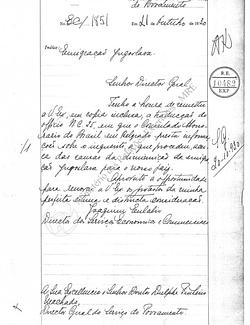 do Povoamento
Em 21 outubro de 1920
Emigração Jugoslava
Senhor Director Geral,
Tenho a honra de remetter
a V. Ex., em copia inclusa, a traducção do
officio N. 25, em que o Consulado Hono-
rario do Brasil em Belgrado presta informa-
ções sobre o inquerito a que procedeu, acer-
ca das causas da diminuição da emigra-
ção jugoslava para o nosso paiz.
Aproveito a opportunidade
para renovar a V. Ex. os protestos da minha
perfeita estima e distincta consideração.
Joaquim Eulalio
Director dos Serviços Economicos e Commerciaes
R.E.
10482
EXP.
A Sua Excellencia o Senhor Doutor Dulphe Pinheiro
Machado,
Director Geral do Serviço de Povoamento